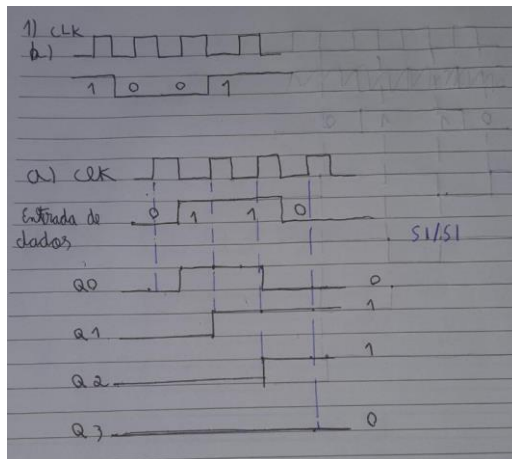 1) CLK
b)
1 0 0 1
a) CLK
Entrada de dados 0 1 1 0
SI/SI
Q0 0
Q1 1
Q2 1
Q3 0